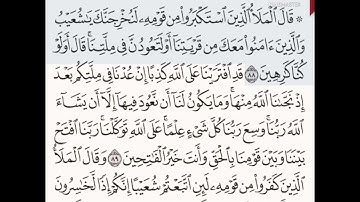 ۞ قَالَ ٱلْمَلَأُ ٱلَّذِينَ ٱسْتَكْبَرُوا۟ مِن قَوْمِهِۦ لَنُخْرِجَنَّكَ يَـٰشُعَيْبُ
وَٱلَّذِينَ ءَامَنُوا۟ مَعَكَ مِن قَرْيَتِنَآ أَوْ لَتَعُودُنَّ فِى مِلَّتِنَا ۚ قَالَ أَوَلَوْ
كُنَّا كَـٰرِهِينَ ٨٨ قَدِ ٱفْتَرَيْنَا عَلَى ٱللَّهِ كَذِبًا إِنْ عُدْنَا فِى مِلَّتِكُم بَعْدَ
إِذْ نَجَّىٰنَا ٱللَّهُ مِنْهَا ۚ وَمَا يَكُونُ لَنَآ أَن نَّعُودَ فِيهَآ إِلَّآ أَن يَشَآءَ
ٱللَّهُ رَبُّنَا ۚ وَسِعَ رَبُّنَا كُلَّ شَىْءٍ عِلْمًا ۚ عَلَى ٱللَّهِ تَوَكَّلْنَا ۚ رَبَّنَا ٱفْتَحْ
بَيْنَنَا وَبَيْنَ قَوْمِنَا بِٱلْحَقِّ وَأَنتَ خَيْرُ ٱلْفَـٰتِحِينَ ٨٩ وَقَالَ ٱلْمَلَأُ
ٱلَّذِينَ كَفَرُوا۟ مِن قَوْمِهِۦ لَئِنِ ٱتَّبَعْتُمْ شُعَيْبًا إِنَّكُمْ إِذًا لَّخَـٰسِرُونَ